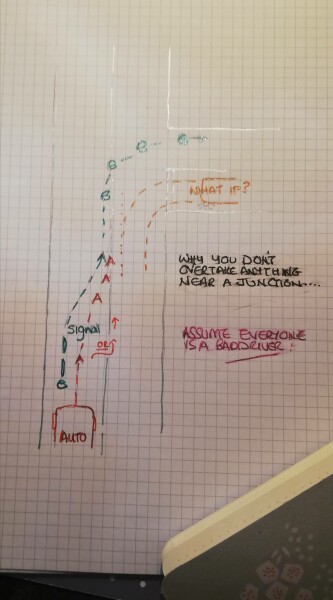 B
B
B
B
WHAT IF?
A
A
A
WHY YOU DON'T
OVERTAKE ANYTHING
NEAR A JUNCTION....
Signal
ASSUME EVERYONE
IS A BAD DRIVER!
OR
A
B
AUTO